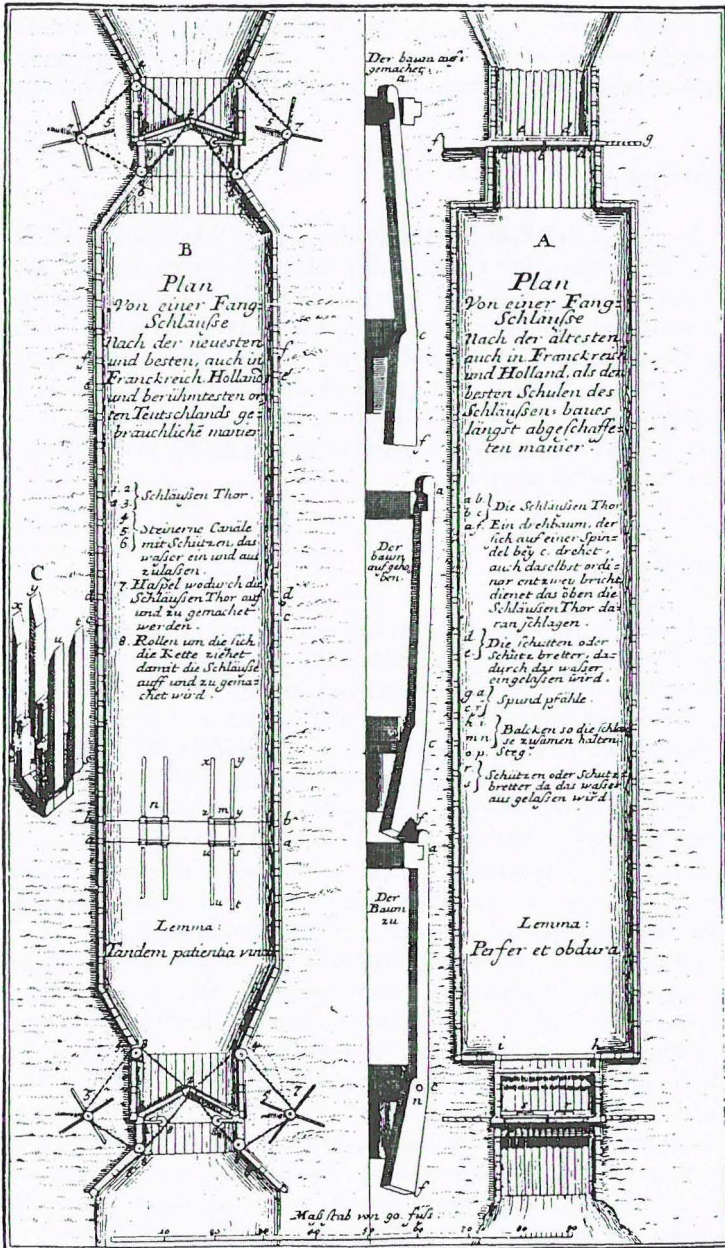 B
Plan
Von einer Fang=
Schläusse
Nach der neuesten
und besten, auch in
Franckreich Holland
und berühmtesten or
ten Teutschlands ge=
bräuchliche manier
1. 2
2 3.
Schläussen Thor.
4
5.
6
Steinerne Canäle
mit Schützen, das
wasser ein und aus
zulassen.
7. Haspel wodurch die
Schläussen Thor auf
und zu gemachet
werden.
8. Rollen um die sich
die Kette ziehet
damit die Schläusse
auff und zu gema=
chet wird.
C
x
y
u
t
x y
n
z m y
b b
a a
u s
u t
Lemma:
Tandem patientia vincit
Der baum auf=
gemachet.
a
c
f
a
Der
baum
aufgeho
ben.
c
f
a
Der
Baum
zu
c
n
f
f g
A
Plan
Von einer Fang=
Schläusse
Nach der ältesten
auch in Franckreich
und Holland, als den
besten Schulen des
Schläussen=baues
längst abgeschaffe=
ten manier.
a b.
b c
Die Schläussen Thor
a f. Ein drehbaum, der
sich auf einer Spin=
del bey c. drehet,
auch daselbst ordi=
nar entzwey bricht,
dienet das oben die
Schläussen Thor da=
ran schlagen.
d
e
Die schutten oder
Schütz bretter, da=
durch das wasser
eingelassen wird.
g a
c f
Spund pfähle.
h i
m n
Balcken so die schläus
se zusamen halten,
o. p. Steg.
r
s
Schützen oder Schutz=
bretter da das wasser
aus gelassen wird
Lemma:
Perfer et obdura
i h
Maßstab von 90. fuss.
10 20 30 50 60 70 80 90